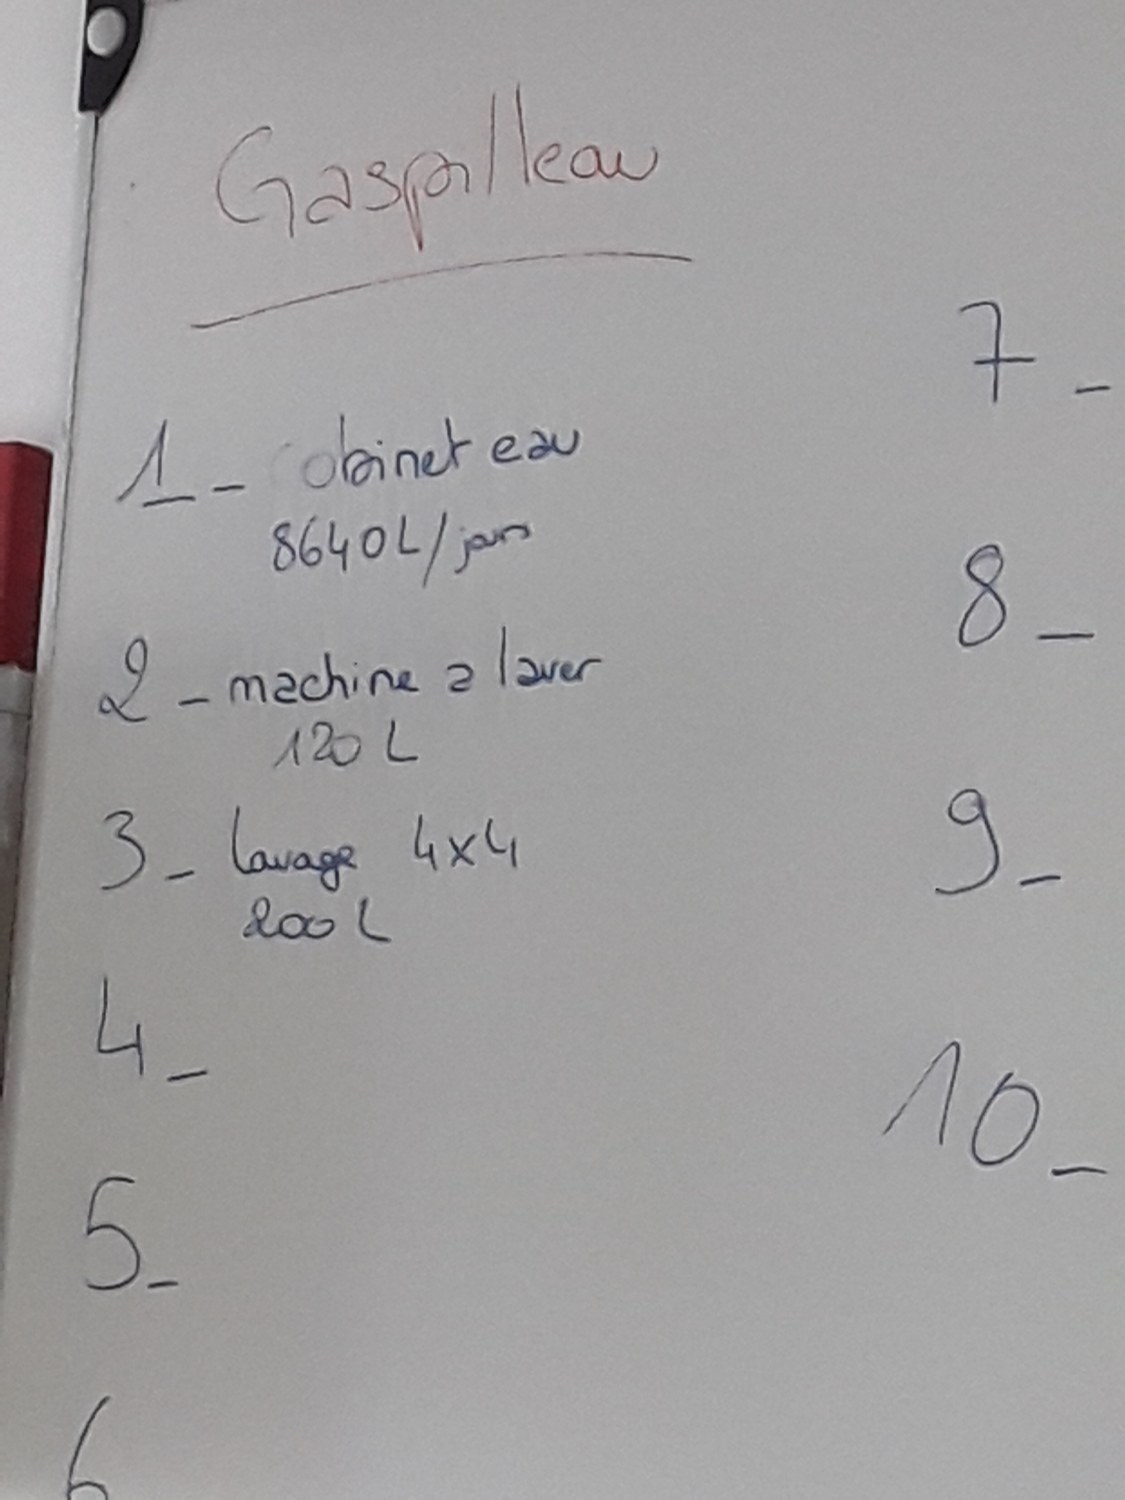 Gaspilleau
1_ robinet eau
8640L/jours
2_ machine a laver
120 L
3_ lavage 4x4
200 L
4_
5_
6
7_
8_
9_
10_